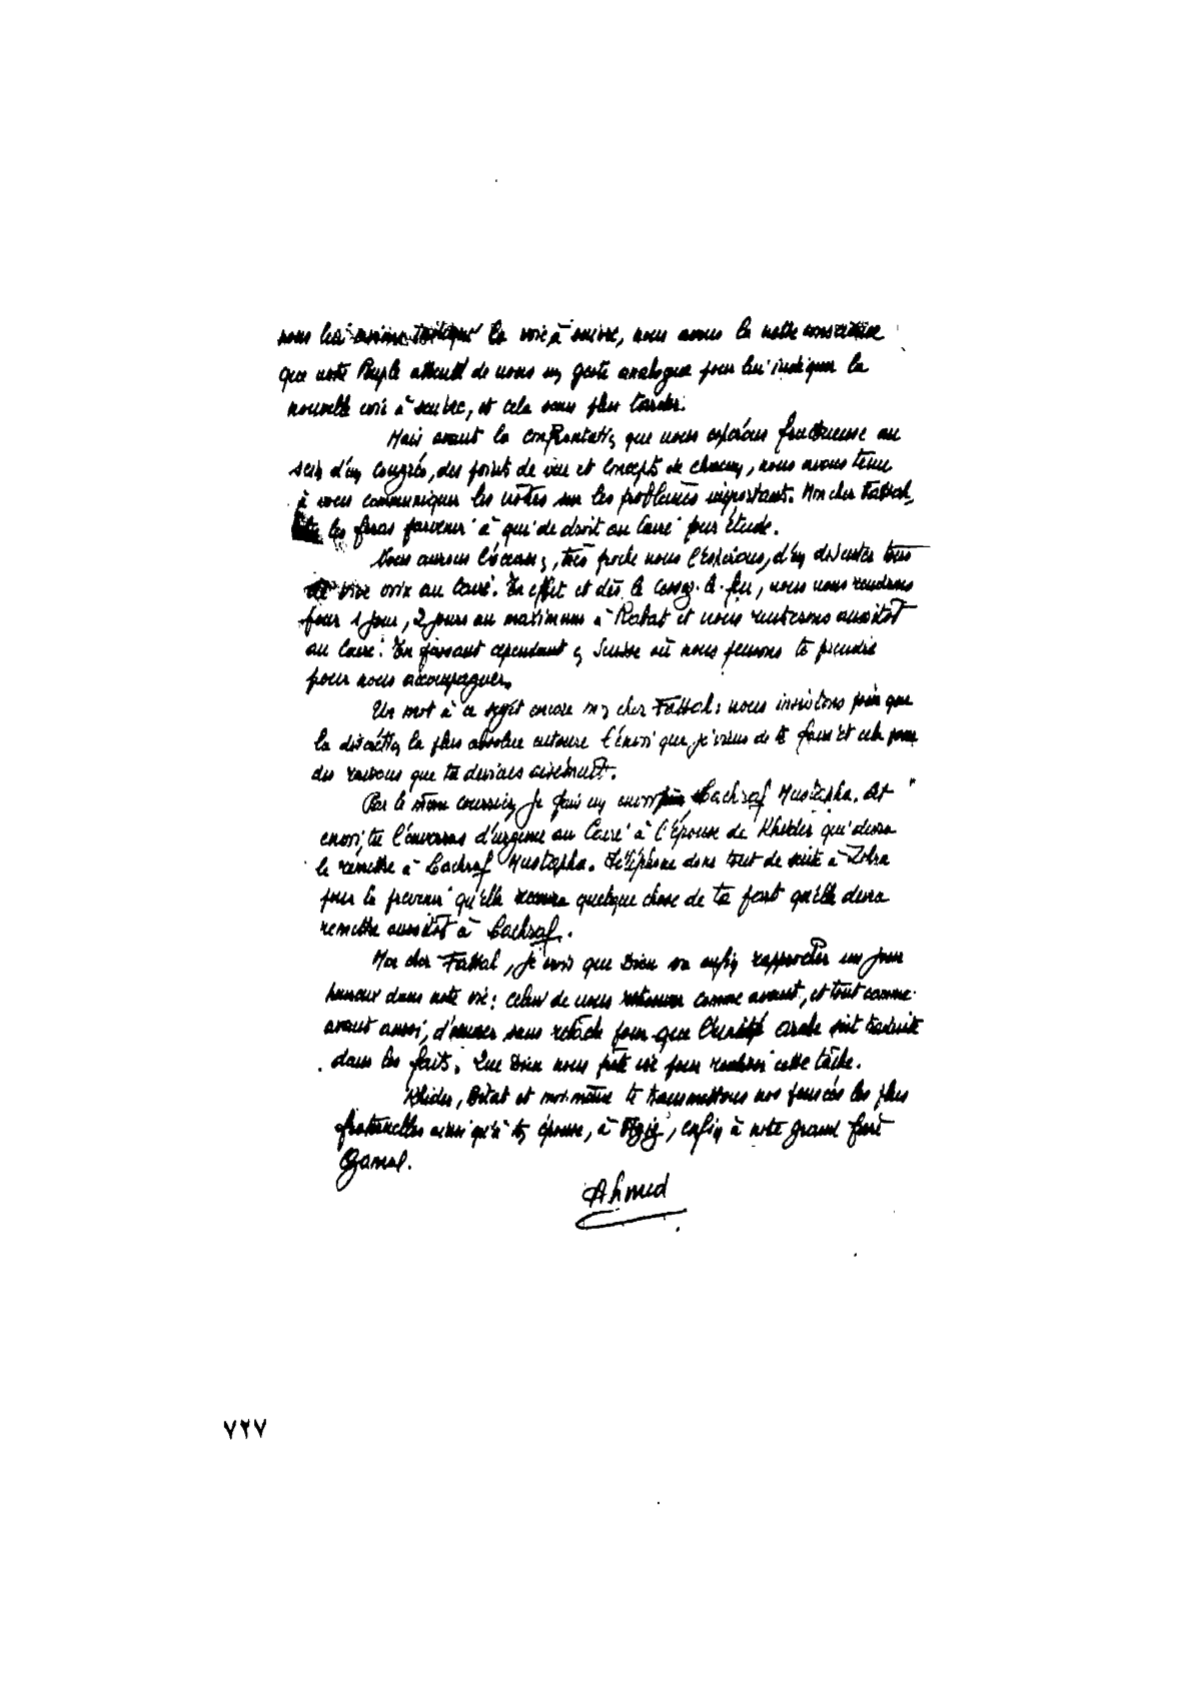 nous lui avions la voie à suivre, nous avons la nette conscience
que notre Peuple attend de nous un geste analogue pour lui indiquer la
nouvelle voie à suivre, et cela sans plus tarder.
Mais avant la confrontation, que nous espérons fructueuse au
sein d'un congrès, des points de vue et concepts de chacun, nous avons tenu
à vous communiquer les nôtres sur les problèmes importants. Mon cher Fathal,
les feras parvenir à qui de droit au Caire pour étude.
Nous aurons l'occasion, très proche nous l'espérons, d'en discuter tous
de vive voix au Caire. En effet et dès le cessez-le-feu, nous nous rendrons
pour 1 jour, 2 jours au maximum à Rabat et nous rentrerons aussitôt
au Caire. En passant cependant en Suisse où nous pensons te prendre
pour nous accompagner.
Un mot à ce sujet encore mon cher Fathal: nous insistons pour que
la discrétion la plus absolue entoure l'envoi que je viens de te faire et cela pour
des raisons que tu devines aisément.
Par le même courrier, je fais un envoi pour Lachraf Mustapha. Cet
envoi, tu l'enverras d'urgence au Caire à l'épouse de Khider qui devra
le remettre à Lachraf Mustapha. Téléphone donc tout de suite à Zohra
pour la prévenir qu'elle recevra quelque chose de ta part qu'elle devra
remettre aussitôt à Lachraf.
Mon cher Fathal, je crois que Dieu va enfin rapprocher un jour
heureux dans notre vie: celui de nous retrouver comme avant, et tout comme
avant aussi, d'œuvrer sans relâche pour que l'unité arabe soit traduite
dans les faits. Que Dieu nous prête vie pour remplir cette tâche.
Khider, Bitat et moi-même te transmettons nos pensées les plus
fraternelles ainsi qu'à ton épouse, à Aziz, enfin à notre grand frère
Gamal.
Ahmed
٧٢٧